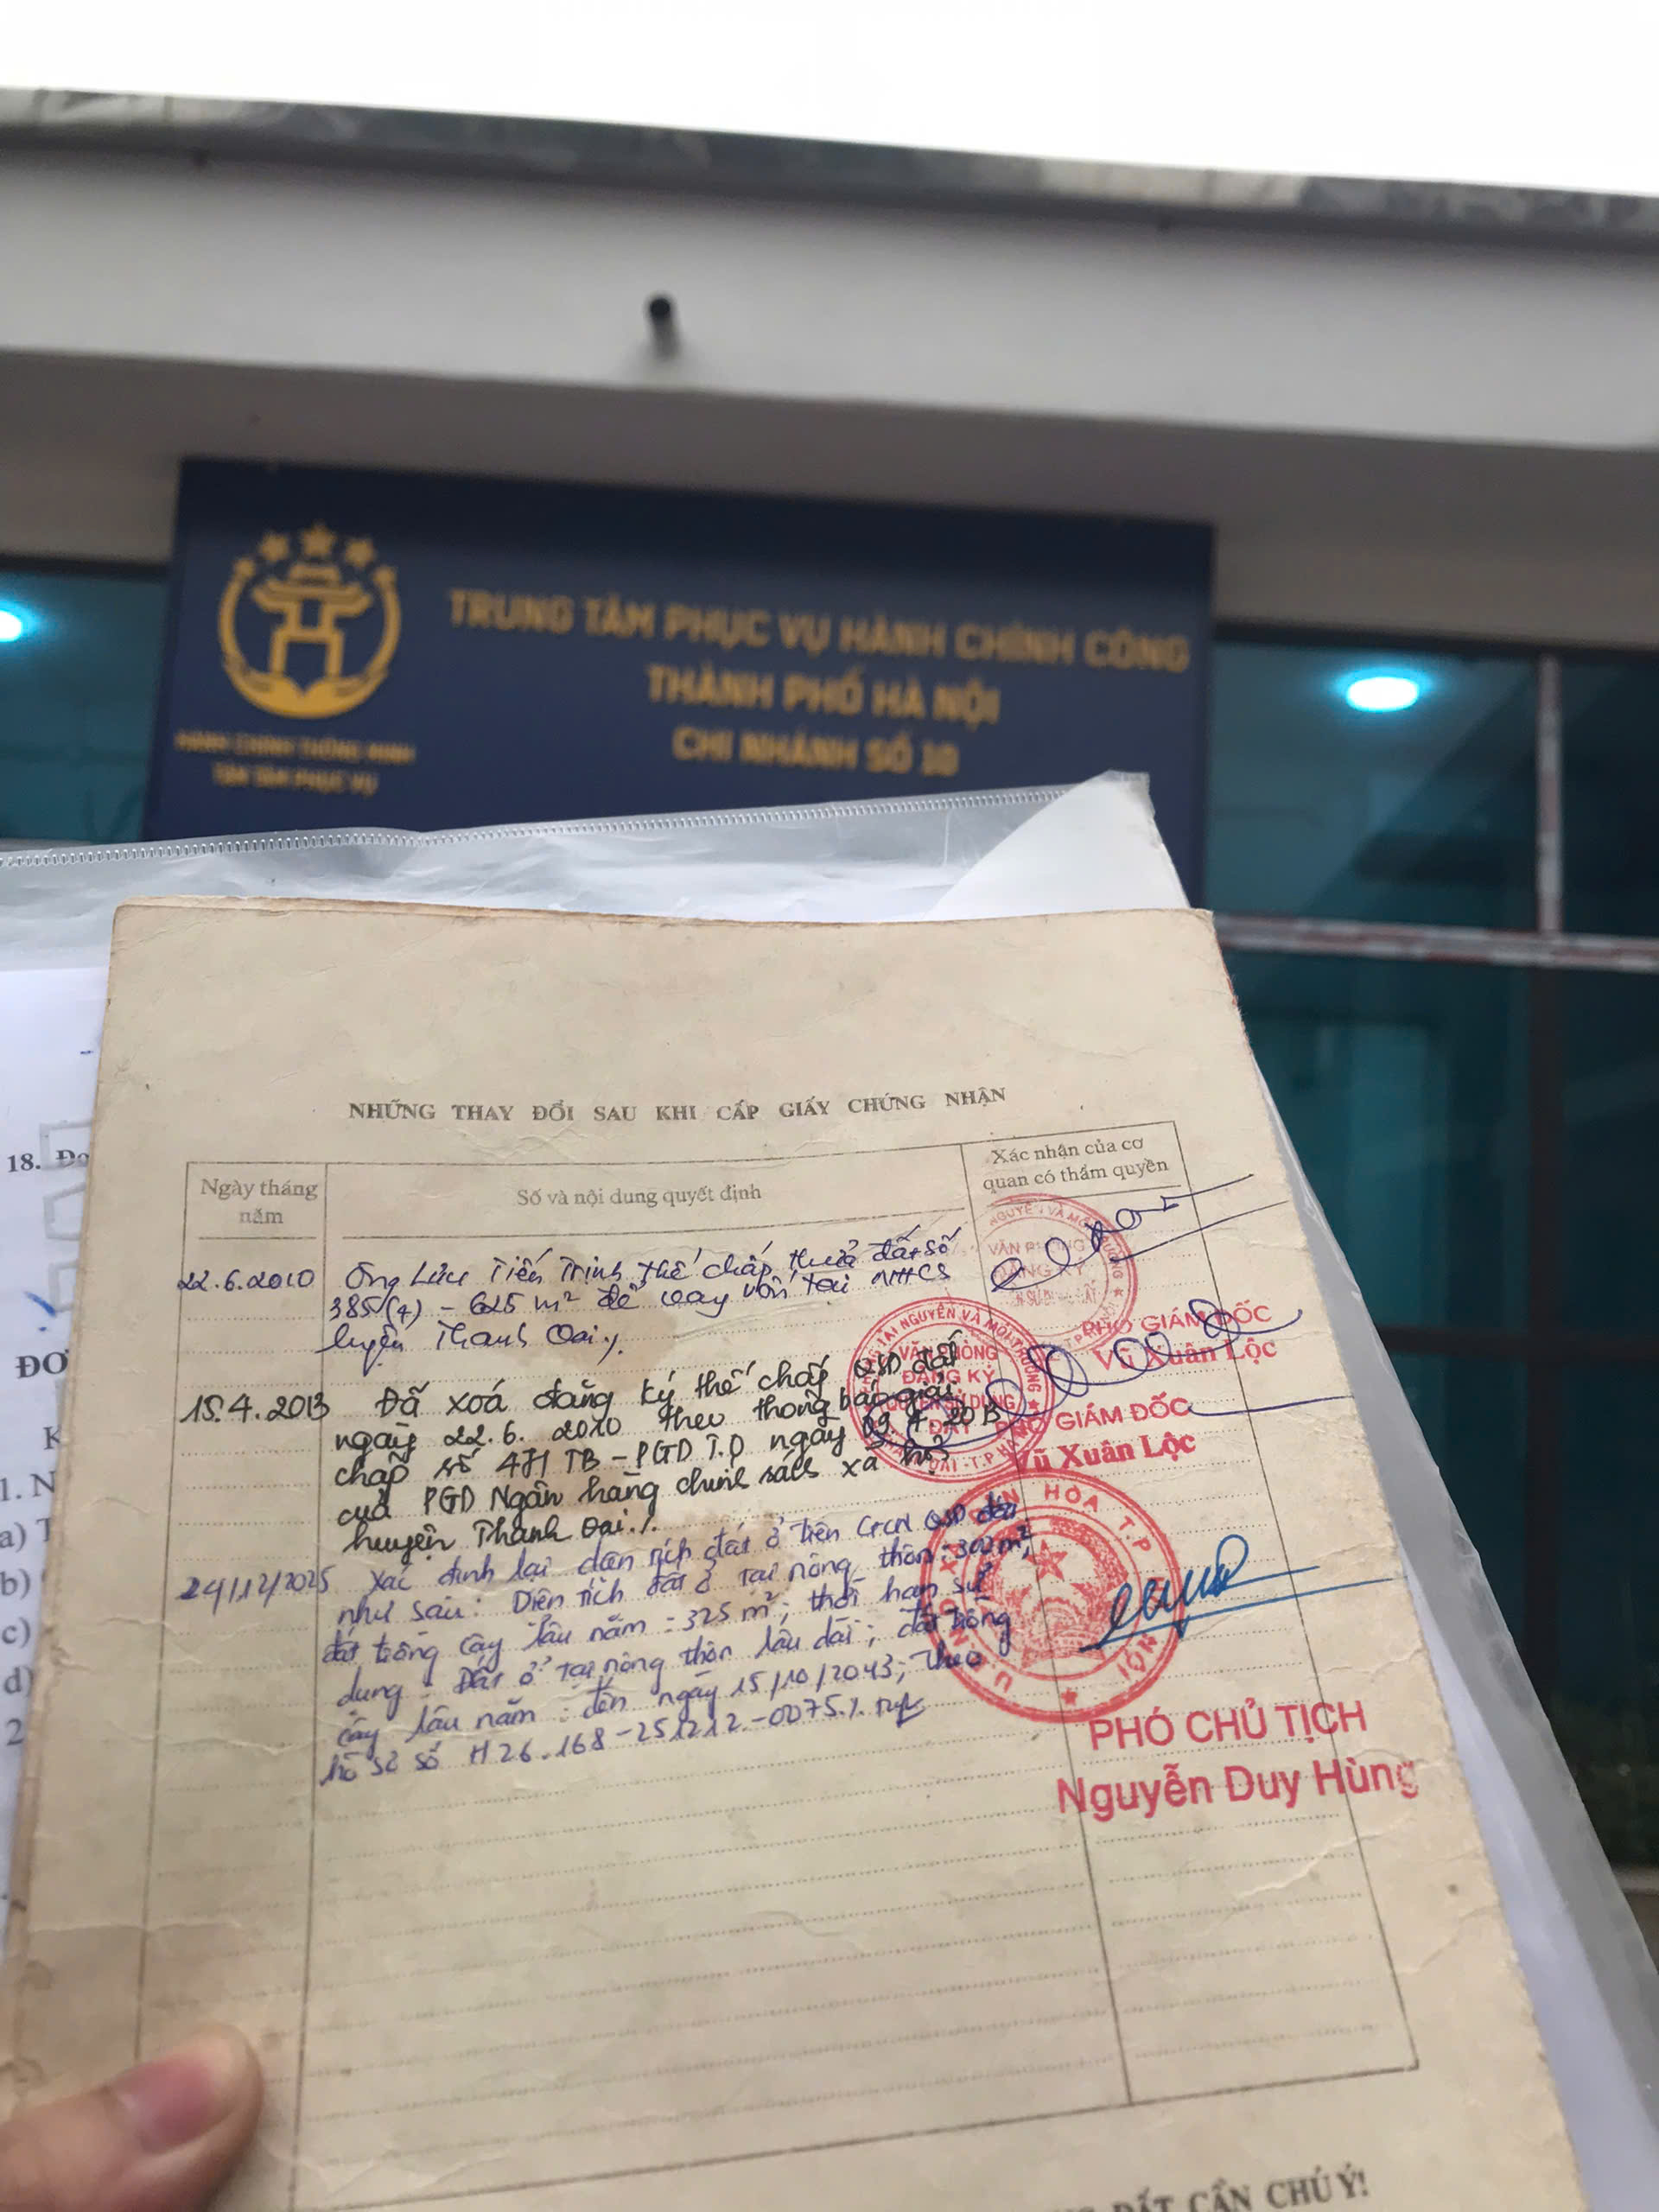 TRUNG TÂM PHỤC VỤ HÀNH CHÍNH CÔNG
THÀNH PHỐ HÀ NỘI
CHI NHÁNH SỐ 10
HÀNH CHÍNH THÔNG MINH
TẬN TÂM PHỤC VỤ
18. Đơ
ĐƠ
K
1. N
a) T
b)
c)
d)
2
NHỮNG THAY ĐỔI SAU KHI CẤP GIẤY CHỨNG NHẬN
Ngày tháng năm
Số và nội dung quyết định
Xác nhận của cơ quan có thẩm quyền
22.6.2010 Ông Lưu Tiến Trình thế chấp thửa đất số
385(4) - 625 m² để vay vốn tại NHCS
huyện Thanh Oai./.
PHÓ GIÁM ĐỐC
Vũ Xuân Lộc
15.4.2013 Đã xoá đăng ký thế chấp QSD đất
ngày 22.6.2010 theo thông báo giải
chấp số 471 TB - PGD T.O ngày 09.4.2013
của PGD Ngân hàng chính sách xã hội
huyện Thanh Oai./.
VĂN PHÒNG
ĐĂNG KÝ
QUYỀN SỬ DỤNG
ĐẤT
PHÓ GIÁM ĐỐC
Vũ Xuân Lộc
24/12/2025 Xác định lại diện tích đất ở trên GCN QSD đất
như sau: Diện tích đất ở tại nông thôn: 300m²,
đất trồng cây lâu năm: 325 m²; thời hạn sử
dụng: Đất ở tại nông thôn lâu dài; đất trồng
cây lâu năm: đến ngày 15/10/2043; theo
hồ sơ số H26.168-251212-0075./.
PHÓ CHỦ TỊCH
Nguyễn Duy Hùng
ĐẤT CẦN CHÚ Ý!